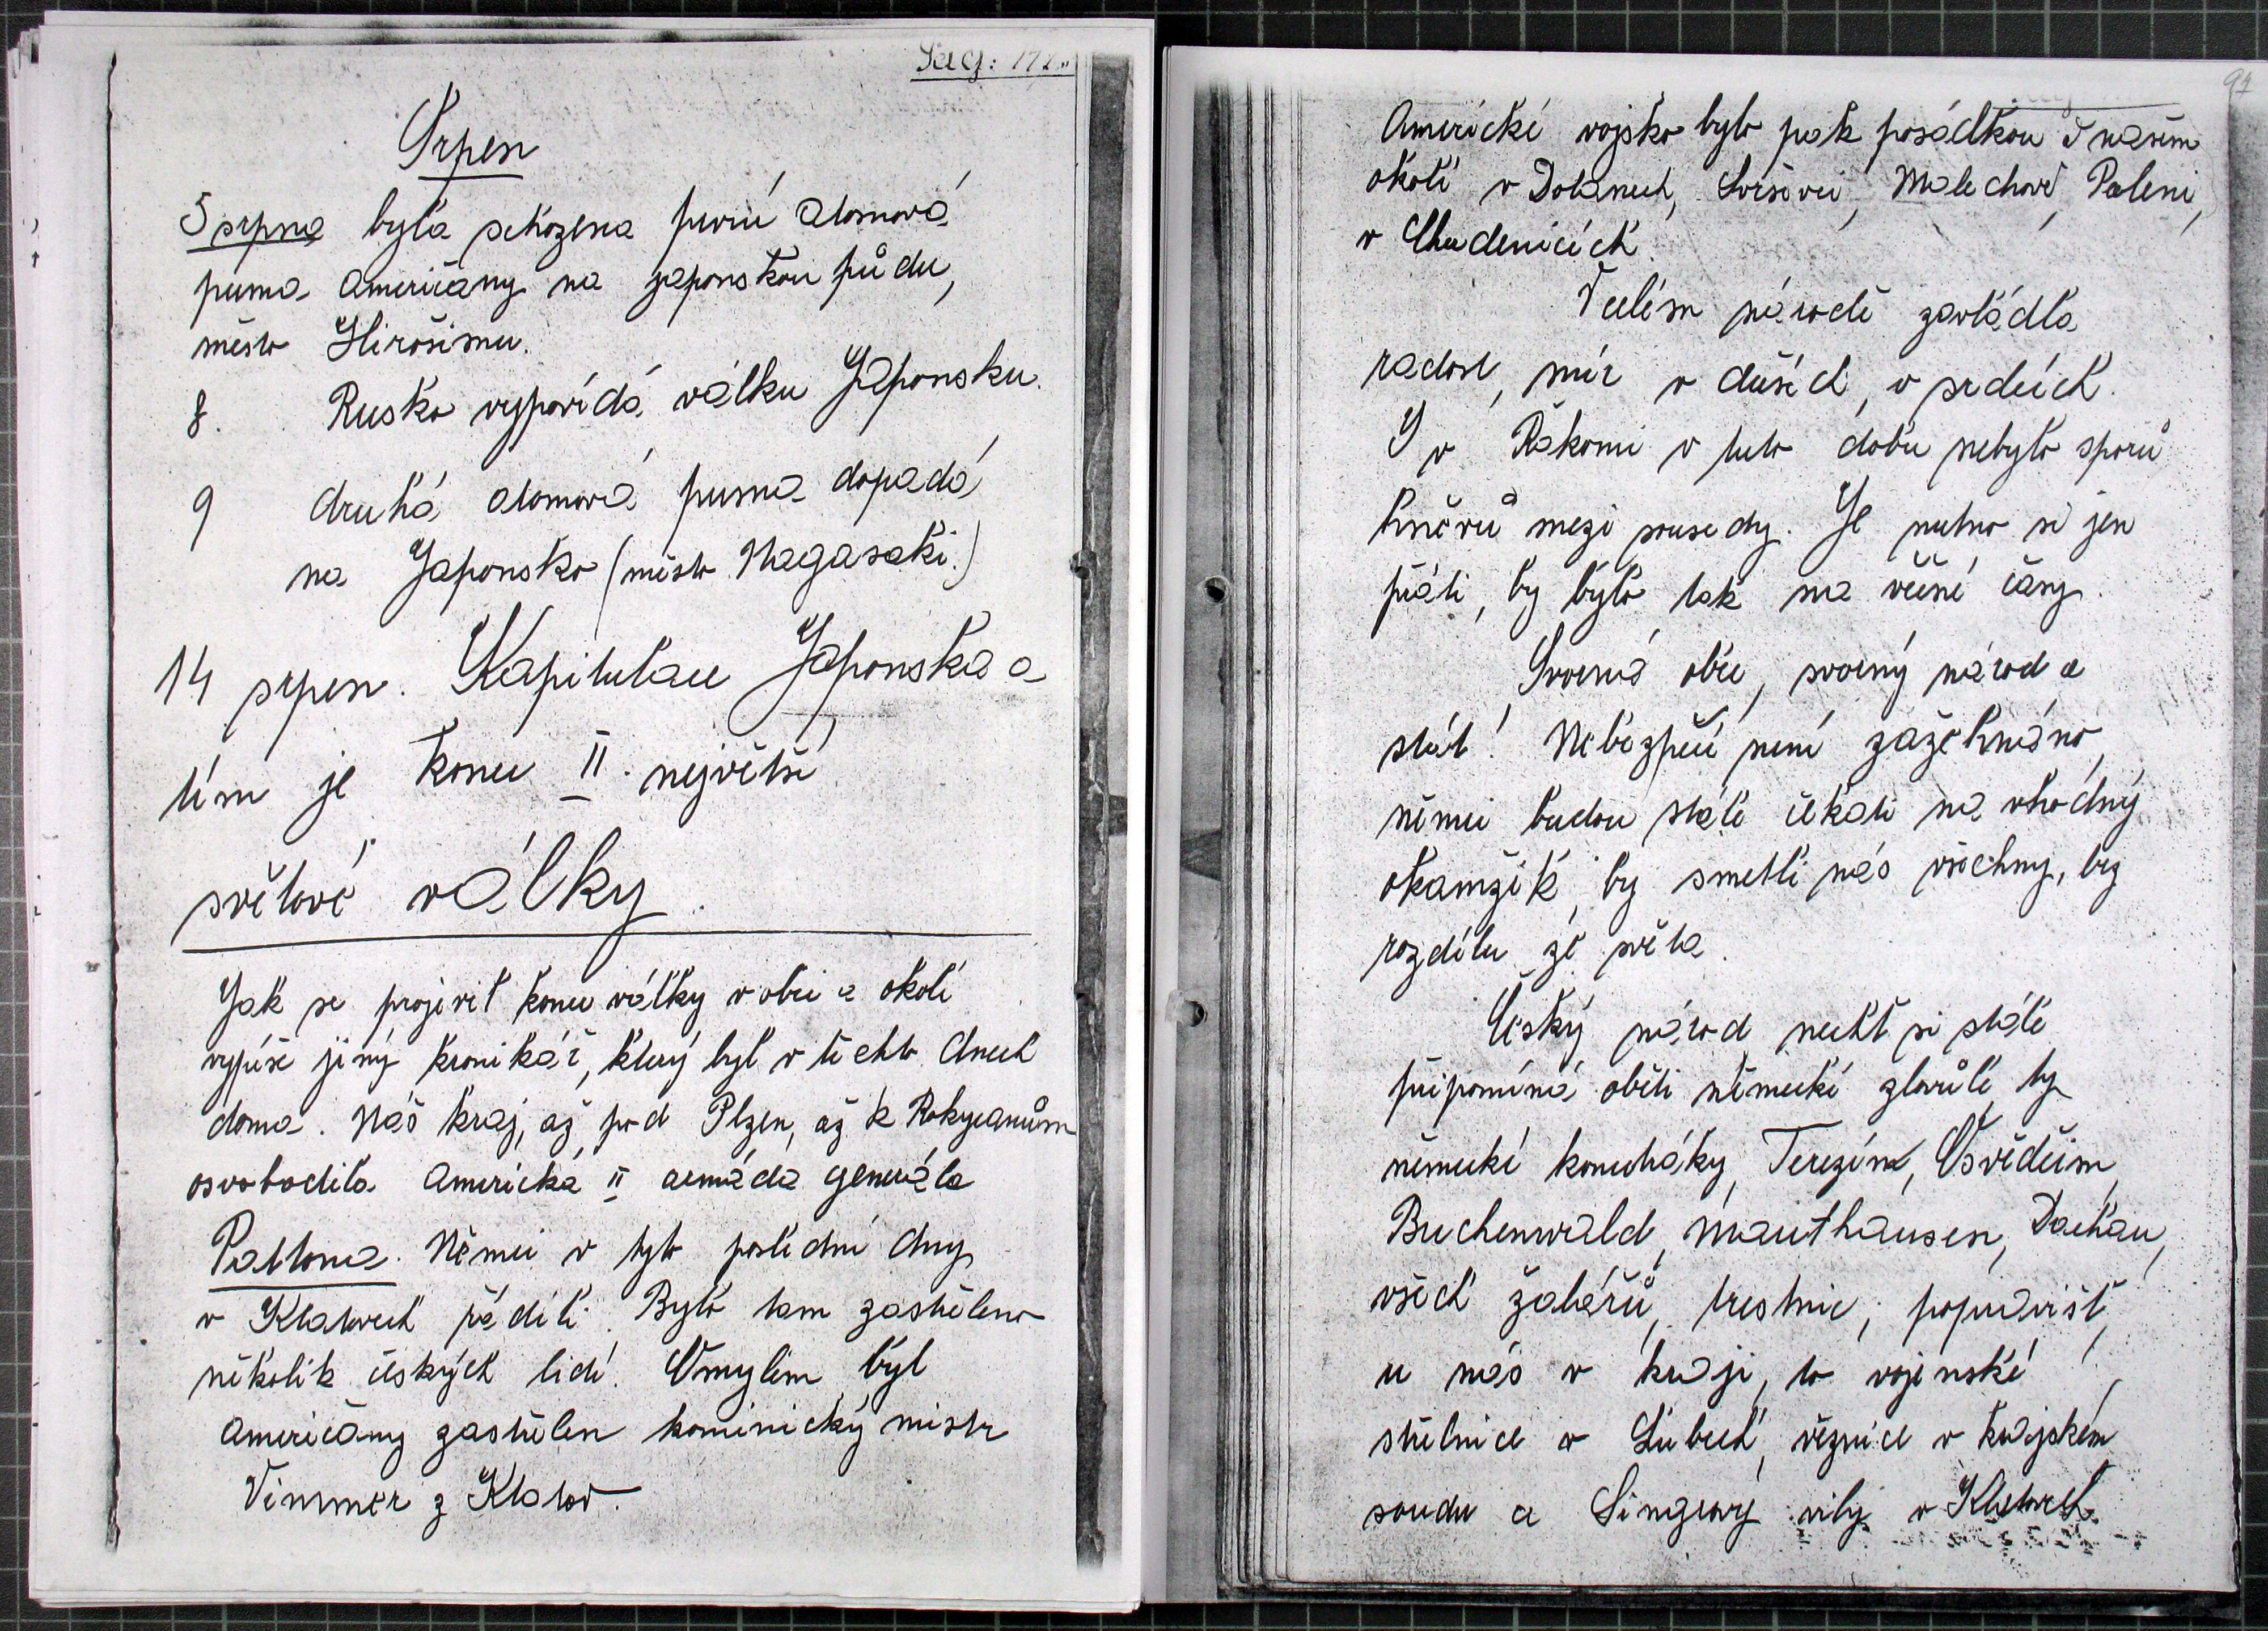 Pag: 172.
Srpen
5 srpna byla schozena první atomová
puma Američany na japonskou půdu,
město Hirošimu.
8. Rusko vypovídá válku Japonsku.
9 druhá atomová puma dopadá
na Japonsko (město Nagasaki.)
14 srpen. Kapitulace Japonska a
tím je konec II. největší
světové války.
Jak se projevil konec války v obci a okolí
vypíše jiný kronikář, který byl v těchto dnech
doma. Náš kraj, až pod Plzen, až k Rokycanům
osvobodila Americká II armáda generála
Pattona. Němci v tyto poslední dny
v Klatovech řádili. Bylo tam zastřeleno
několik českých lidí. Omylem byl
Američany zastřelen kominický mistr
Vimmer z Klatov.
94
Americké vojsko bylo pak posádkou v našem
okolí v Dolanech, Svrčovci, Malechově, Poleni,
v Chudenicích.
V celém národě zavládla
radost, mír v duších, v srdcích.
I v Řakomi v tuto dobu nebylo sporů
hněvů mezi sousedy. Je nutno si jen
přáti, by bylo tak na věčné časy.
Svorná obec, svorný národ a
stát! Nebezpečí není zažehnáno,
němci budou stále čekati na vhodný
okamžik, by smetli nás všechny, by
rozdílu ze světa.
Český národ nechť si stále
připomíná oběti německé zlovůle, ty
německé koncháky, Terezín, Osvěčim,
Buchenwald, Mauthausen, Dachau,
všech žalářů, trestnic, popravišť,
u nás v kraji, to vojenské
střelnice v Lubech, věznice v krajském
soudu a Singrovy vily v Klatovech.